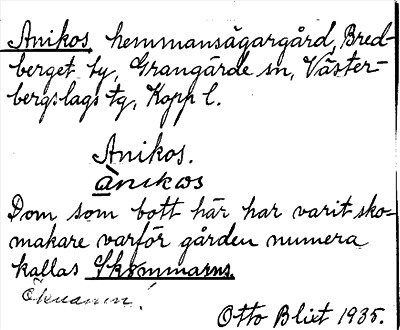 Anikos, hemmansägargård, Bred-
berget by, Grangärde sn, Väster-
bergslags tg, Kopp l.
Anikos.
ànikωs
Dom som bott här har varit sko-
makare varför gården numera
kallas Skommarns.
Öknamn!
Otto Blixt 1935.